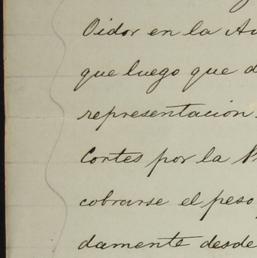 Oidor en la Au
que luego que d
representacion
Cortes por la
cobrarse el peso
damente desde